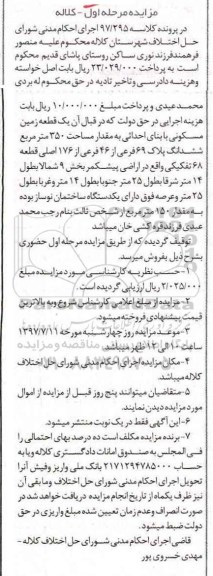 مزایده مرحله اول - کلاله
در پرونده کلاسه ۹۷/۲۹۵ اجرای احکام مدنی شورای
حل اختلاف شهرستان کلاله محکوم علیه منصور
فرهمند فرزند نوری ساکن روستای پاشای قدیم محکوم
است به پرداخت ۲۳/۰۲۹/۰۰۰ ریال بابت اصل خواسته
و هزینه دادرسی و تاخیر تادیه در حق محکوم له بردی
محمد عیدی و پرداخت مبلغ ۱۰/۰۰۰/۰۰۰ ریال بابت
هزینه اجرایی در حق دولت که در قبال آن یک قطعه زمین
مسکونی با بنای احداثی به مقدار مساحت ۳۵۰ متر مربع
ششدانگ پلاک ۶۹ فرعی از ۴۶ فرعی از ۱۷۶ اصلی قطعه
۶۸ تفکیکی واقع در اراضی پیشکمر بخش ۹ شمالا بطول
۱۴ متر شرقا بطول ۲۵ متر جنوبا بطول ۱۴ متر و غربا بطول
۲۵ متر و عرصه فوق دارای یکدستگاه ساختمان نوساز بوده
به مقدار ۱۵۰ متر مربع از شخص ثالث بنام رجب محمد
عیدی فرزند قره کشی خان میباشد
توقیف گردیده که از طریق مزایده مرحله اول حضوری
بشرح ذیل بفروش میرسد.
۱- حسب نظریه کارشناسی مورد مزایده مبلغ
۲/۰۲۵/۰۰۰ ریال ارزیابی گردیده است.
۲- مزایده از مبلغ اعلامی کارشناس شروع و به بالاترین
قیمت پیشنهادی فروخته میشود.
۳- موعد مزایده روز چهارشنبه مورخه ۱۳۹۷/۷/۱۱
ساعت ۱۰ الی ۱۲ ظهر میباشد.
۴- مکان مزایده اجرای احکام مدنی شورای حل اختلاف
کلاله میباشد.
۵- متقاضیان میتوانند پنج روز قبل از مزایده از اموال
مورد مزایده دیدن نمایند.
۶- این آگهی فقط در یک نوبت منتشر میشود.
۷- برنده مزایده مکلف است ده درصد بهای احتمالی را
فی المجلس به صندوق امانات دادگستری کلاله و یا به
حساب ۲۱۷۱۲۹۴۷۸۵۰۰۰ بانک ملی واریز و فیش آنرا
تحویل اجرای احکام مدنی شورای حل اختلاف و مابقی آن
نیز ظرف یکماه از تاریخ انجام مزایده دریافت خواهد شد در
صورت انصراف و عدم زمان تعیین شده مبلغ واریزی در حق
دولت ضبط میشود.
قاضی اجرای احکام مدنی شورای حل اختلاف کلاله -
مهدی خسروی پور